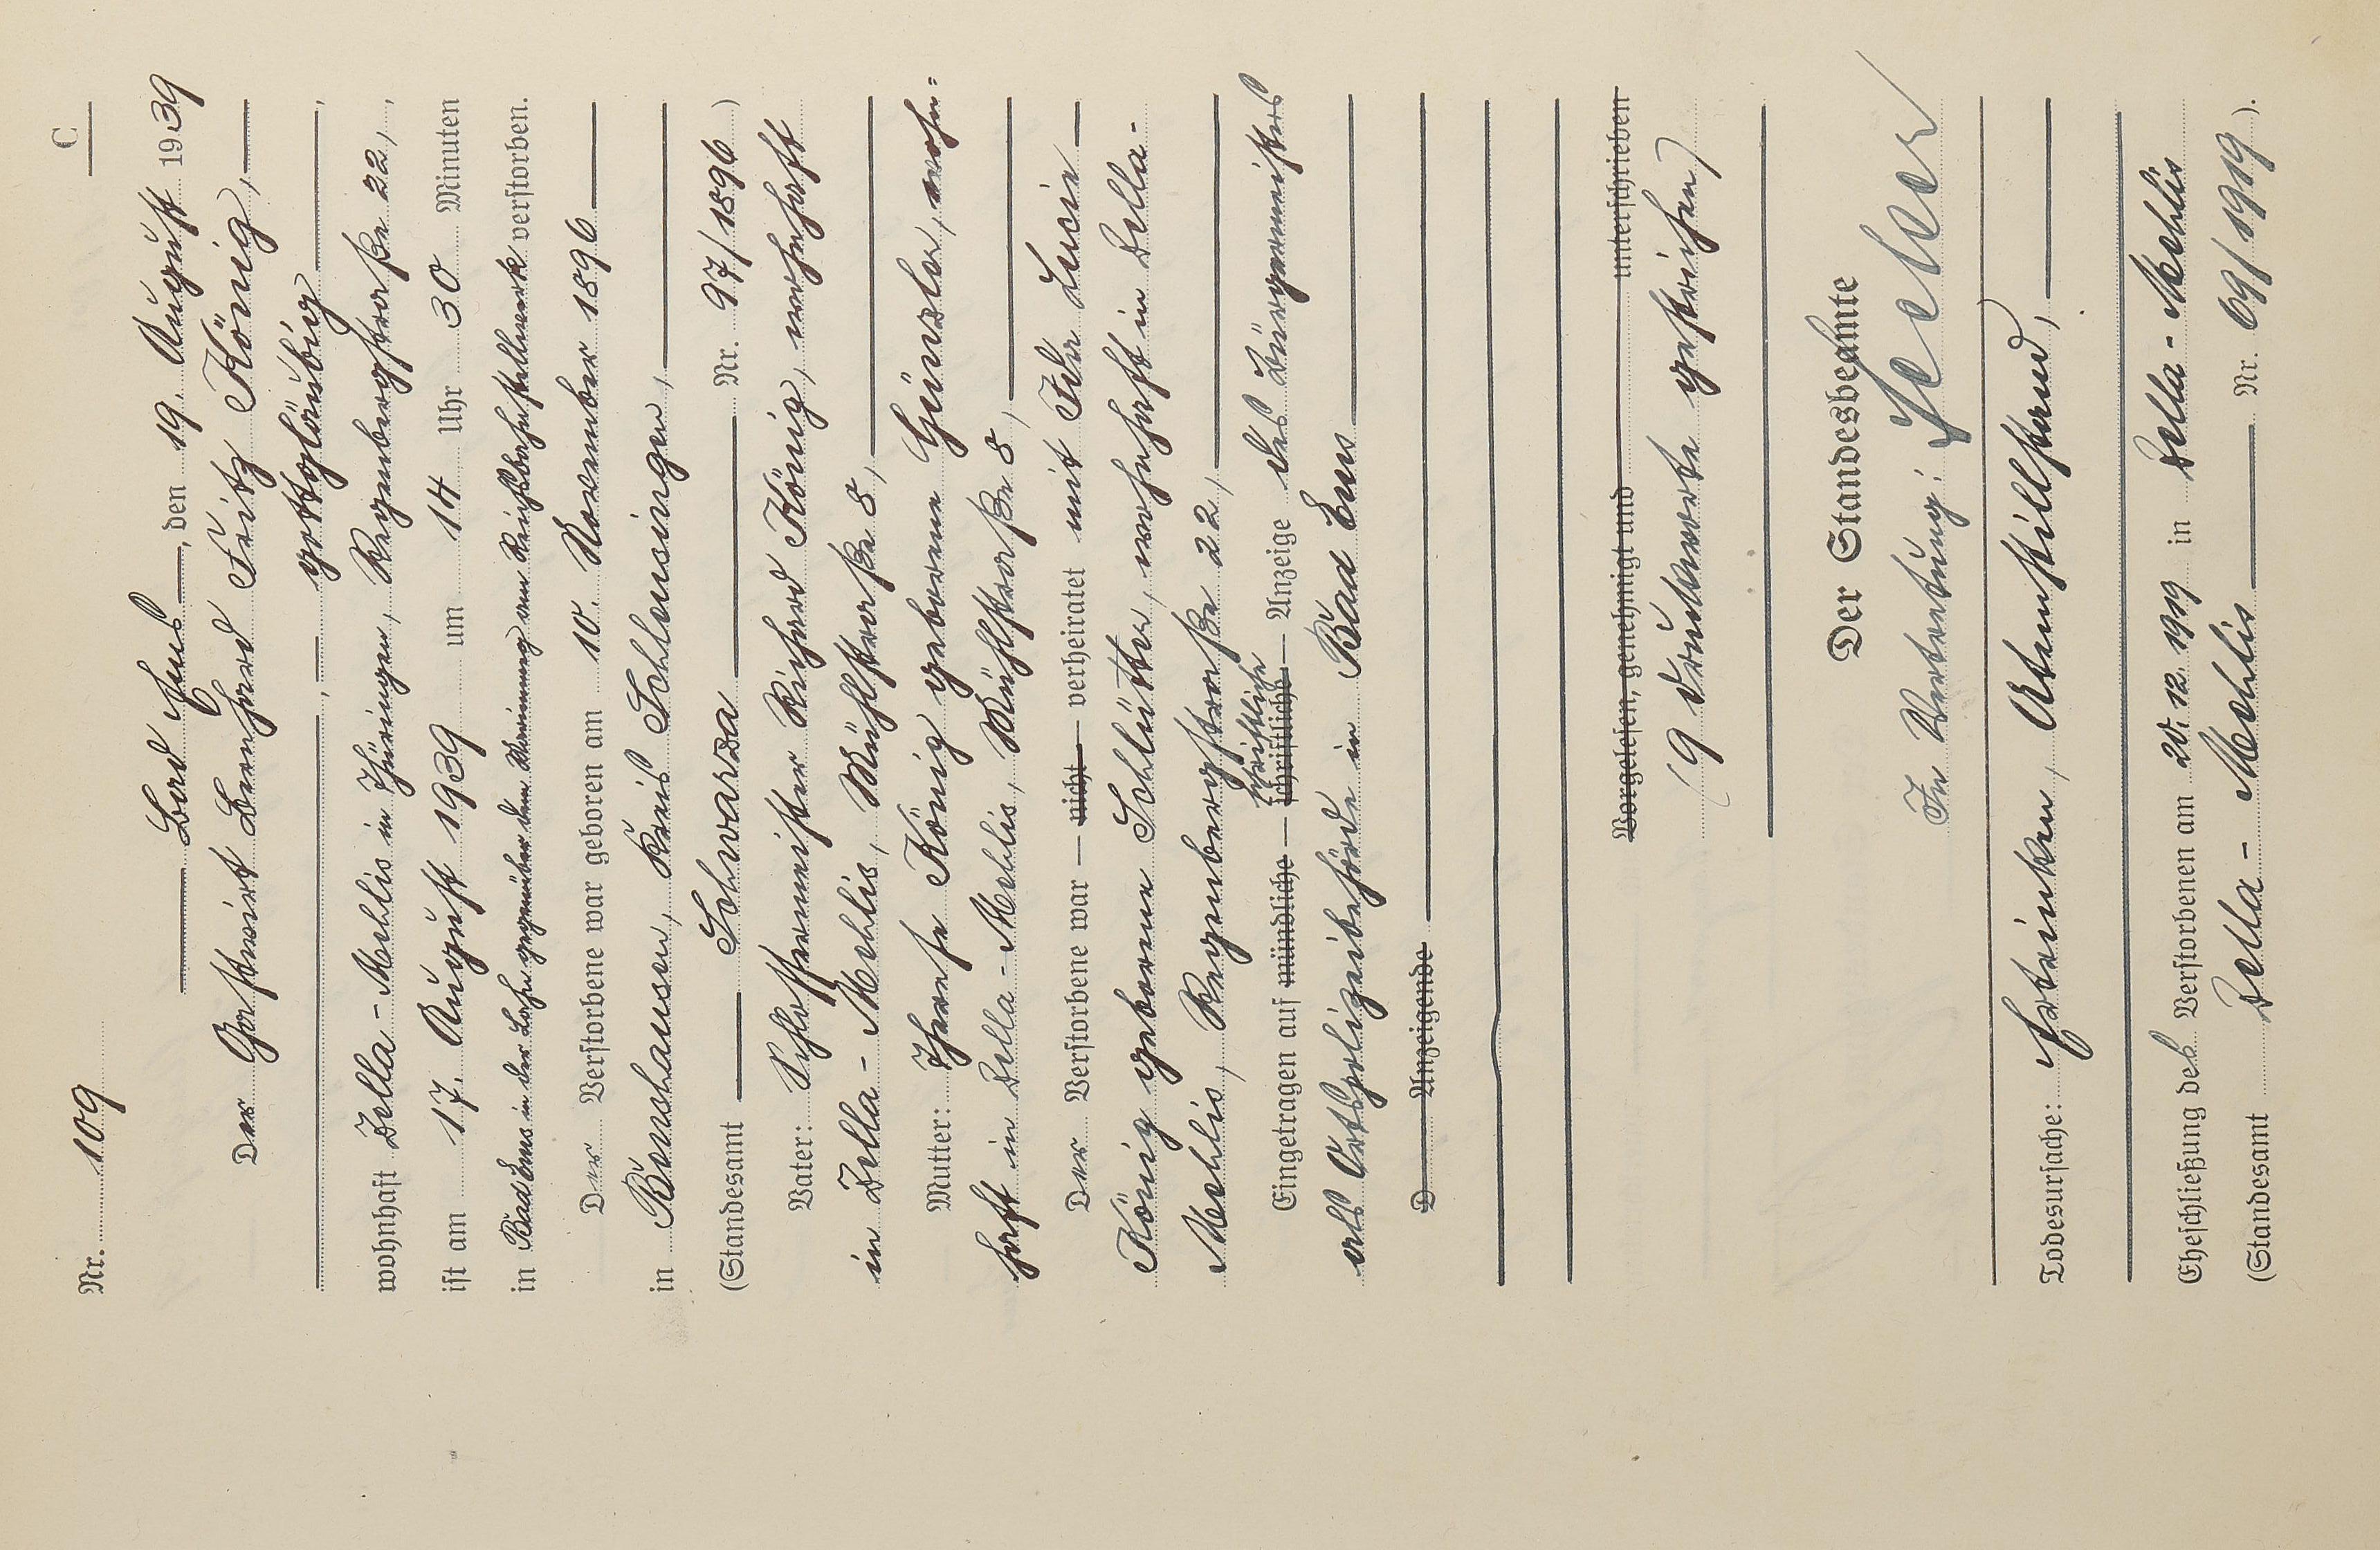 Nr. 109
C
Bad Ems, den 19. August 1939
Der Gastwirt Bernhard Fritz König,
gottgläubig
wohnhaft Zella-Mehlis in Thüringen, Regenbergstraße 22,
ist am 17. August 1939 um 14 Uhr 30 Minuten
in Bad Ems in der Lahn gegenüber dem Steinweg am Reichsbahnstellwerk verstorben.
Der Verstorbene war geboren am 10. November 1896
in Benshausen, Kreis Schleusingen,
(Standesamt Schwarza Nr. 97/1896)
Vater: Schlossermeister Richard König, wohnhaft
in Zella-Mehlis, Mühlstraße 8,
Mutter: Therese König geborene Günzler, wohn-
haft in Zella-Mehlis, Mühlstraße 8,
Der Verstorbene war — nicht — verheiratet mit Ella Lucie
König geborene Schlütter, wohnhaft in Zella-
Mehlis, Regenbergstraße 22,
schriftliche
Eingetragen auf mündliche — schriftliche — Anzeige des Bürgermeisters
als Ortspolizeibehörde in Bad Ems
D Anzeigende
Vorgelesen, genehmigt und unterschrieben
(9 Druckworte gestrichen)
Der Standesbeamte
In Vertretung:
Todesursache: Ertrinken, Atemstillstand,
Eheschließung des Verstorbenen am 20.12.1919 in Zella-Mehlis
(Standesamt Zella-Mehlis Nr. 69/1919).